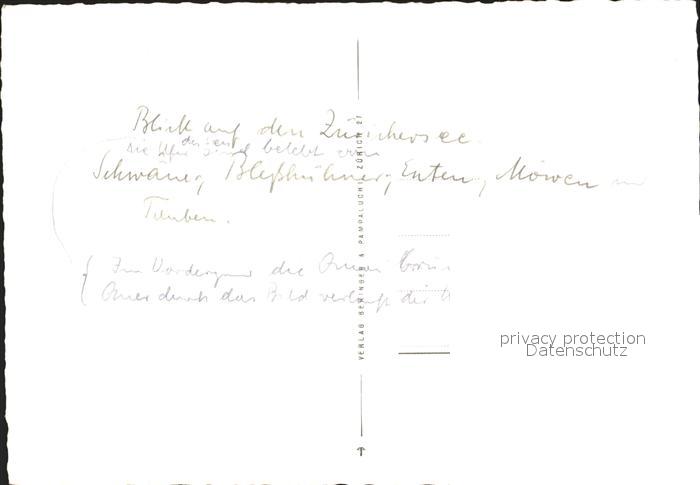 Blick auf den Zürichersee.
die Ufer sind belebt von
Schwäne, Bleßhühner, Enten, Möwen
Tauben.
Im Vordergrund die
Quer durch das Bild verläuft die
VERLAG BERINGER & PAMPALUCHI, ZÜRICH 27
privacy protection
Datenschutz